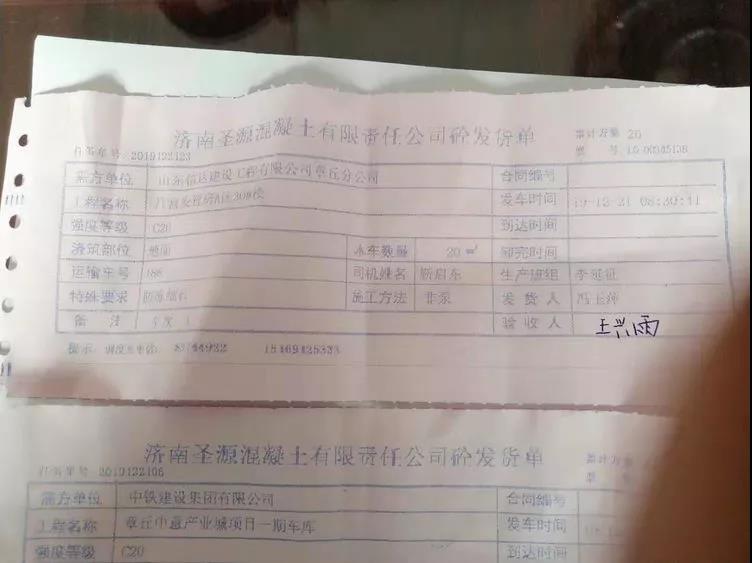 济南圣源混凝土有限责任公司砼发货单
累计方量 20
任务单号 2019122123
票 号
需方单位 山东信达建设工程有限公司章丘分公司 合同编号
工程名称 发车时间 19-12-21 08:30:41
强度等级 C20 到达时间
浇筑部位 地面 本车数量 20 m³ 卸完时间
运输车号 188 司机姓名 靳启东 生产班组 李延征
特殊要求 防冻细石 施工方法 非泵 发货人
备 注 车次 1 验收人 王兴雨
提示: 15169125333
济南圣源混凝土有限责任公司砼发货单
累计方量
任务单号 2019122106
票 号
需方单位 中铁建设集团有限公司 合同编号
工程名称 章丘中意产业城项目一期车库 发车时间
强度等级 C20 到达时间